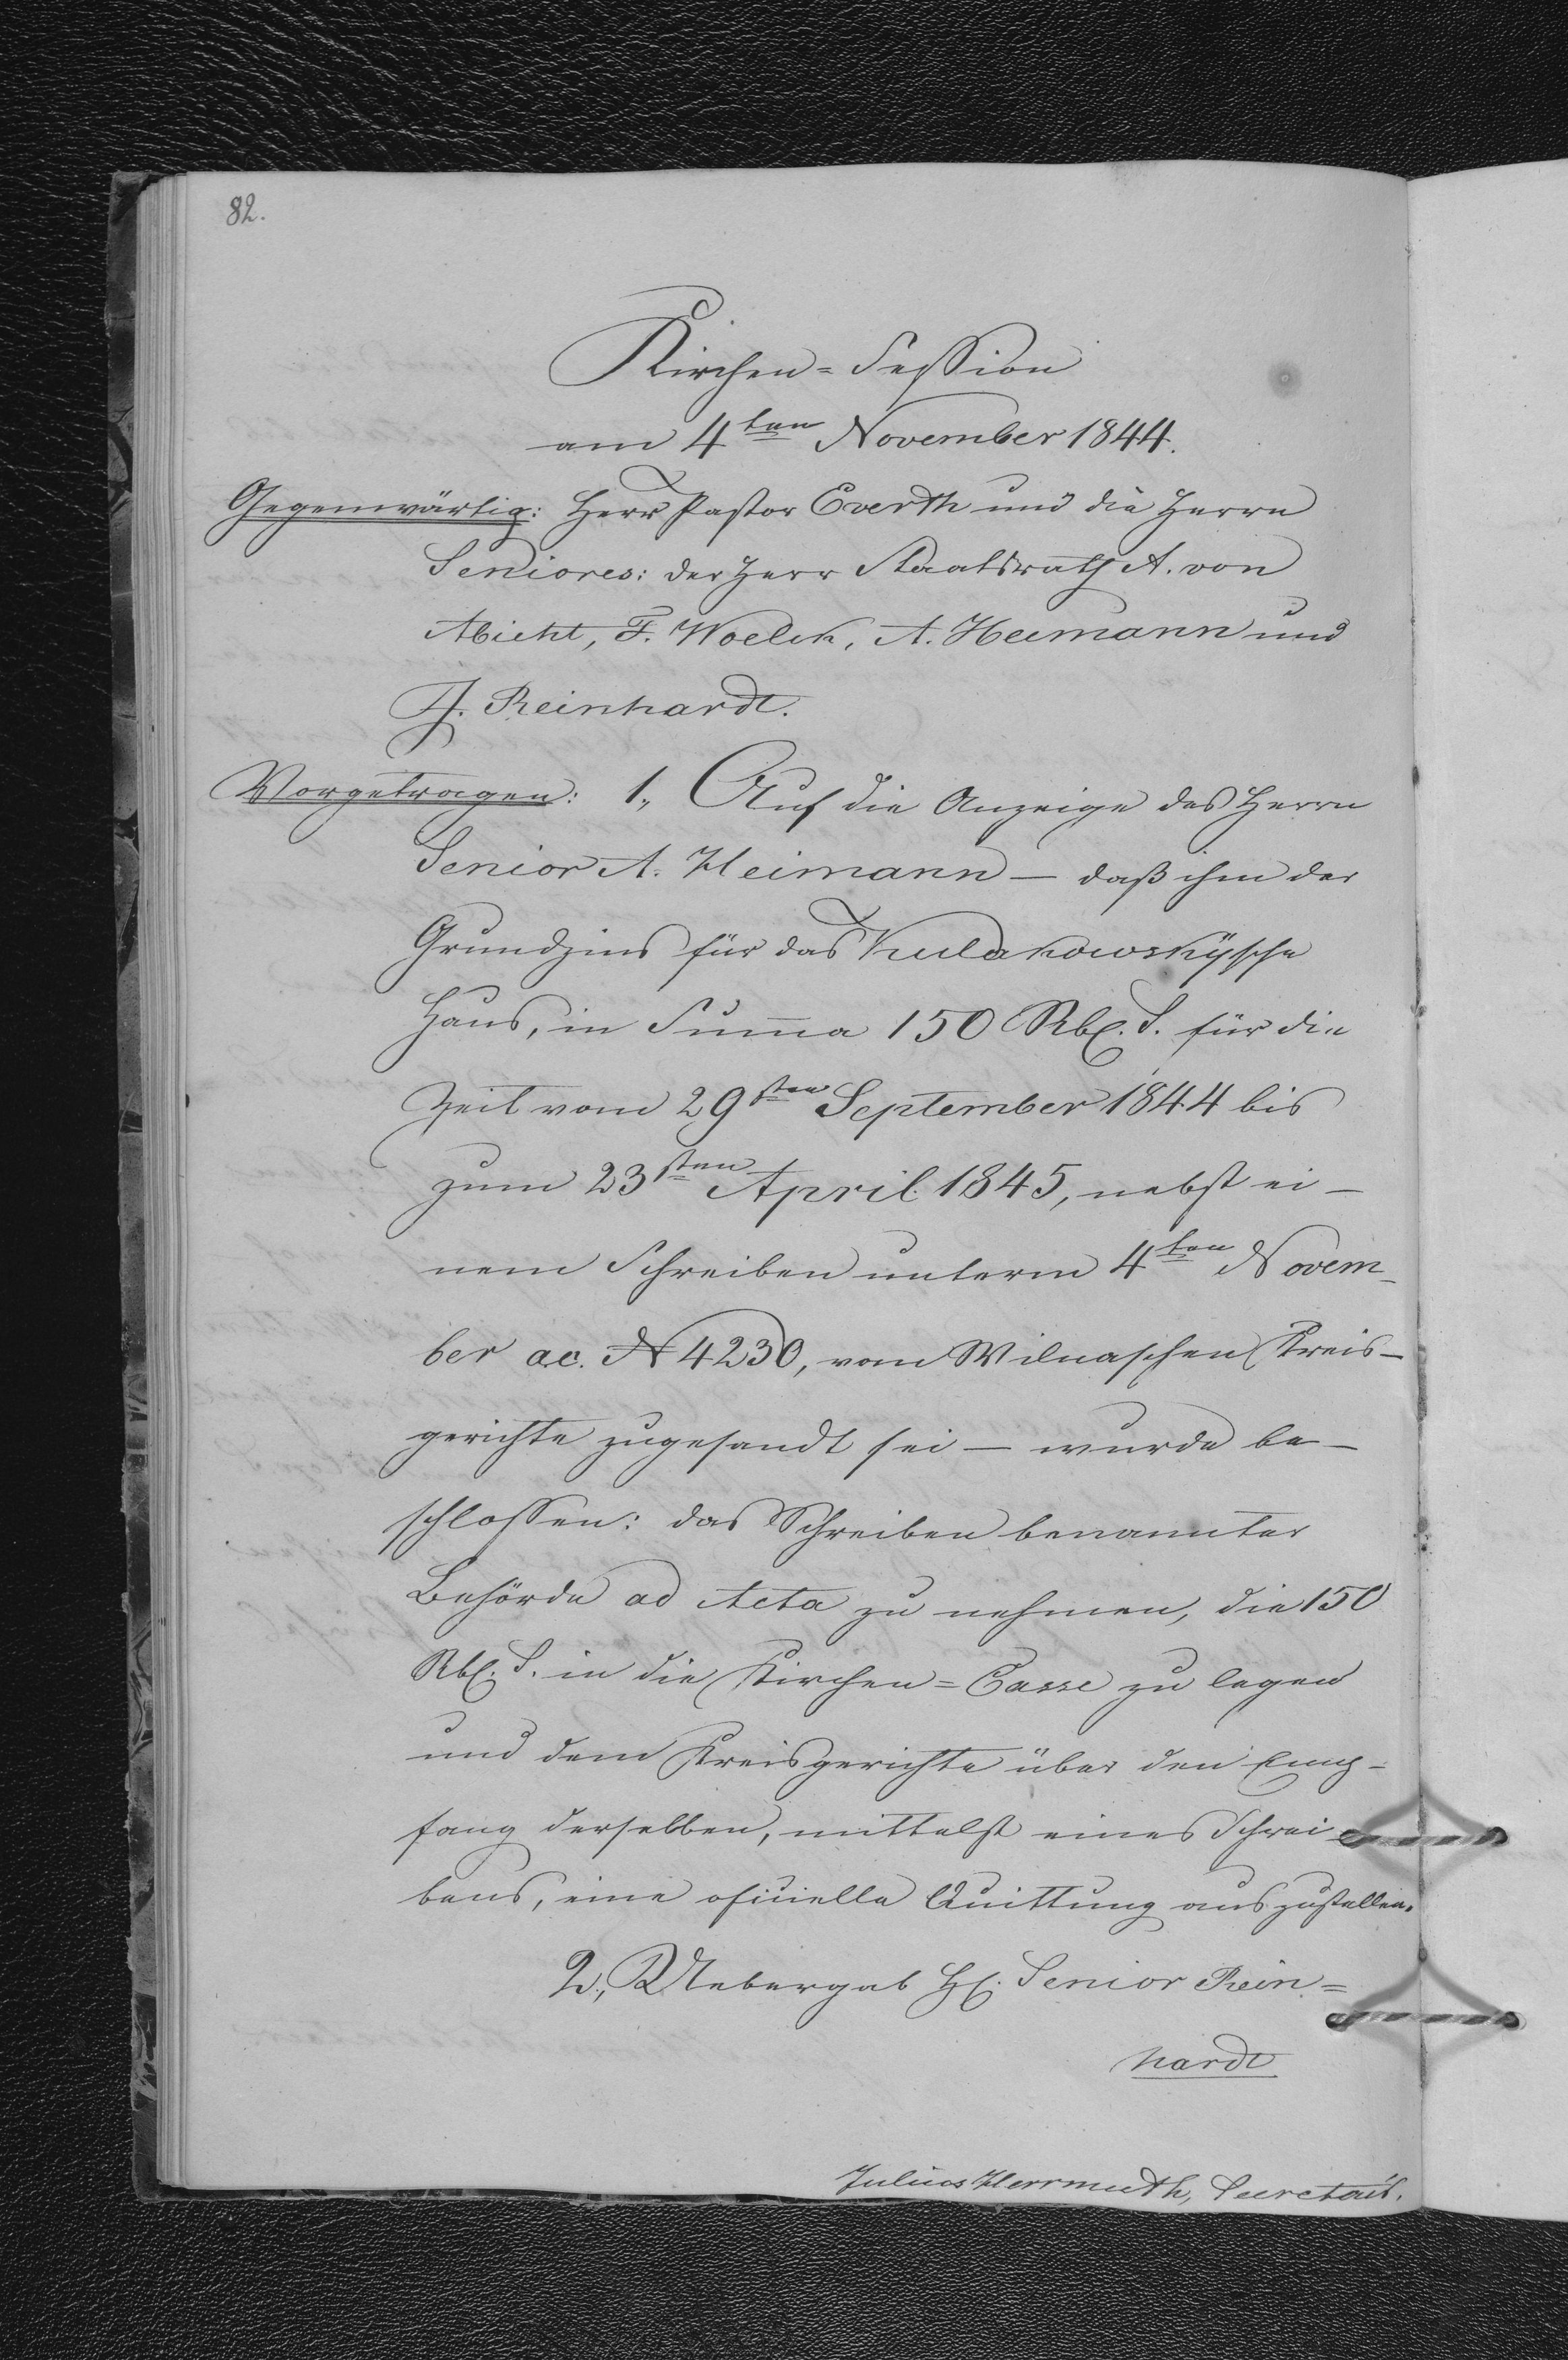 82.
Kirchen=Session
am 4ten November 1844.
Gegenwärtig: Herr Pastor Everth und die Herrn
Seniores: der Herr Staatsrath A. von
Abicht, F. Woelck, A. Heimann und
J. Reinhardt.
Vorgetragen: 1., Auf die Anzeige des Herrn
Senior A. Heimann – daß ihm der
Grundzins für das Kulakowskÿsche
Haus, in Summa 150 Rbl. S. für die
Zeit vom 29sten September 1844 bis
zum 23sten April 1845, nebst ei-
nem Schreiben unterm 4ten Novem-
ber ac. N 4230, vom Wilnaschen Kreis-
gerichte zugesandt sei – wurde be-
schlossen: das Schreiben benannter
Behörde ad Acta zu nehmen, die 150
Rbl. S. in die Kirchen=Casse zu legen
und dem Kreisgerichte über den Emp-
fang derselben, mittelst eines Schrei-
bens, eine oficielle Quittung auszustellen.
2., Uebergab H. Senior Rein=
hardt
Julius Herrmuth, Secretair.